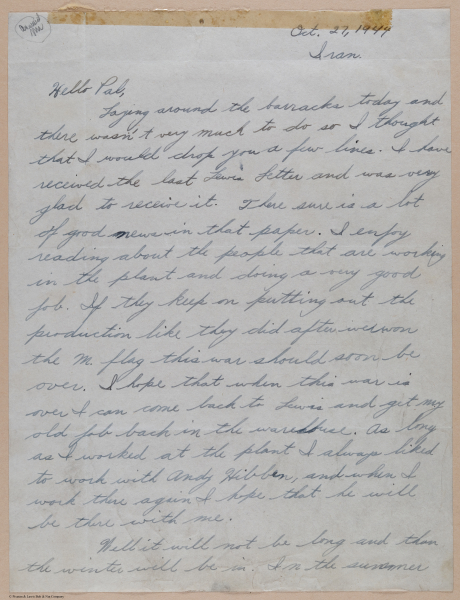 Oct. 27, 1944
Iran.
Hello Pal,
Laying around the barracks today and
there wasn't very much to do so I thought
that I would drop you a few lines. I have
received the last Lewis Letter and was very
glad to receive it. There sure is a lot
of good news in that paper. I enjoy
reading about the people that are working
in the plant and doing a very good
job. If they keep on putting out the
production like they did after we won
the M. flag this war should soon be
over. I hope that when this war is
over I can come back to Lewis and get my
old job back in the warehouse. As long
as I worked at the plant I always liked
to work with Andy Hibben, and when I
work there again I hope that he will
be there with me.
Well it will not be long and than
the winter will be in. In the summer